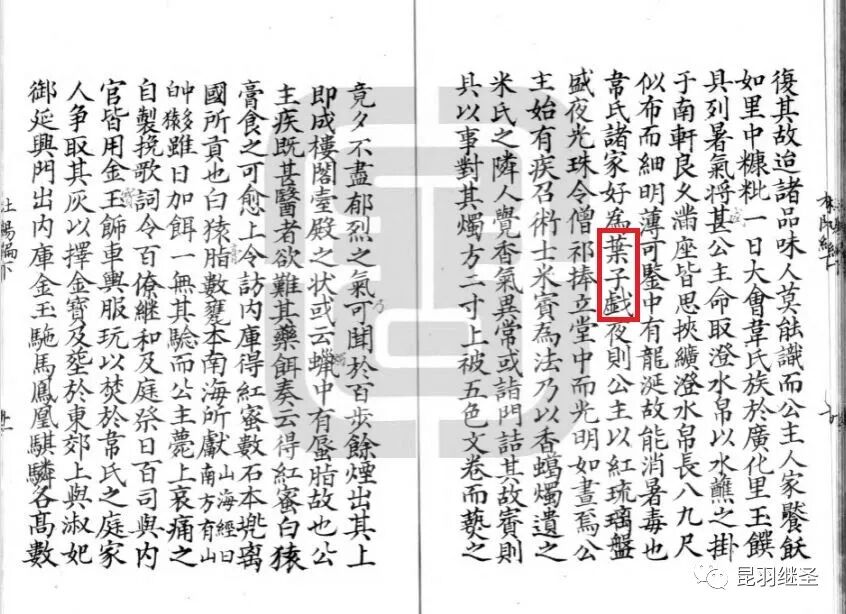 復其故迨諸品味人莫能識而公主人家饜飫
如里中糠粃一日大會韋氏族於廣化里玉饌
具列暑氣將甚公主命取澄水帛以水蘸之掛
于南軒良久滿座皆思挾纊澄水帛長八九尺
似布而細明薄可鑒中有龍涎故能消暑毒也
韋氏諸家好為葉子戯夜則公主以紅琉璃盤
盛夜光珠令僧祁捧立堂中而光明如晝焉公
主始有疾召術士米賓為法乃以香蠟燭遺之
米氏之隣人覺香氣異常或詣門詰其故賓則
具以事對其燭方二寸上被五色文卷而爇之
竟夕不盡郁烈之氣可聞於百步餘煙出其上
即成樓閣臺殿之状或云蠟中有蜃脂故也公
主疾既甚醫者欲難其藥餌奏云得紅蜜白猿
膏食之可愈上令訪內庫得紅蜜數石本兠离
國所貢也白猿脂數甕本南海所獻山海經曰南方有山
中多白猿雖日加餌一無其驗而公主薨上哀痛之
自製挽歌詞令百僚継和及庭祭日百司與內
官皆用金玉飾車輿服玩以焚於韋氏之庭家
人爭取其灰以擇金寶及葬於東郊上與淑妃
御延興門出內庫金玉駞馬鳳凰騏驎各高數
杜陽編下
昆羽继圣